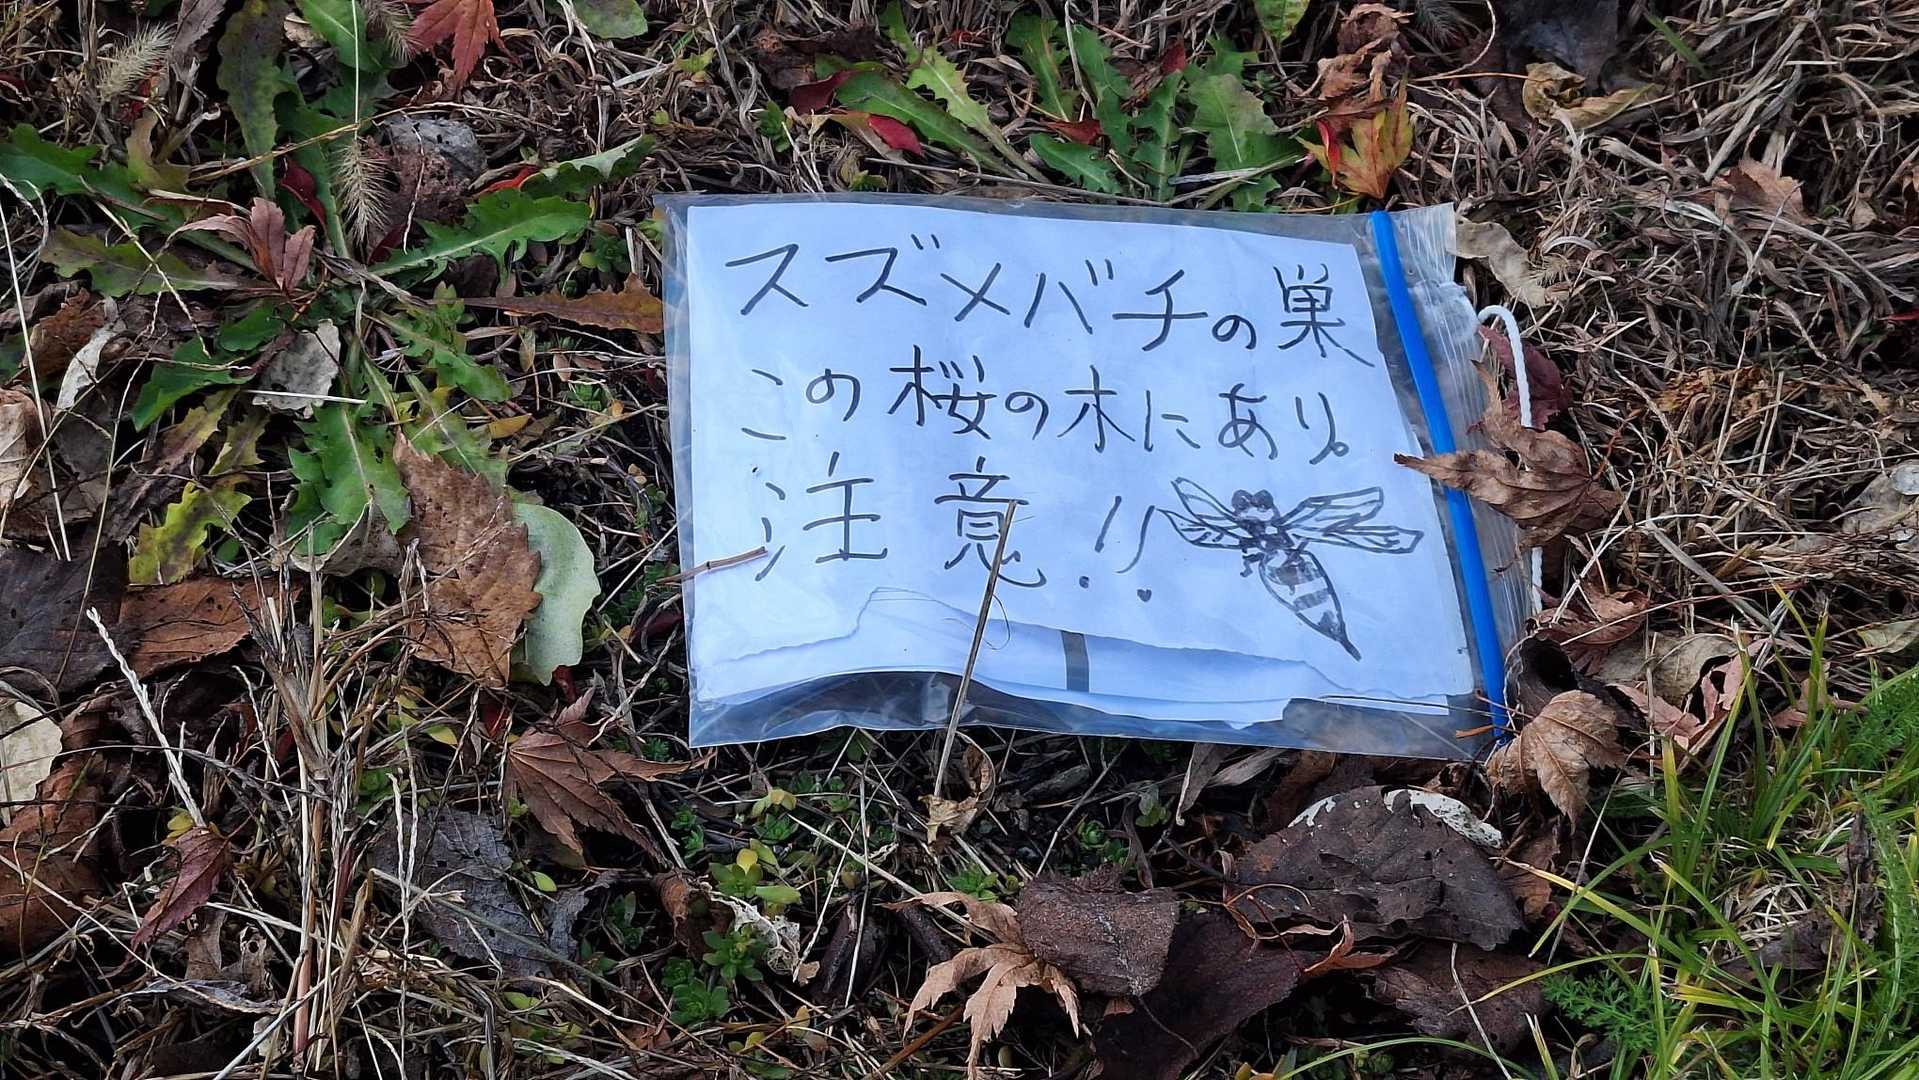 スズメバチの巣
この桜の木にあり。
注意!!